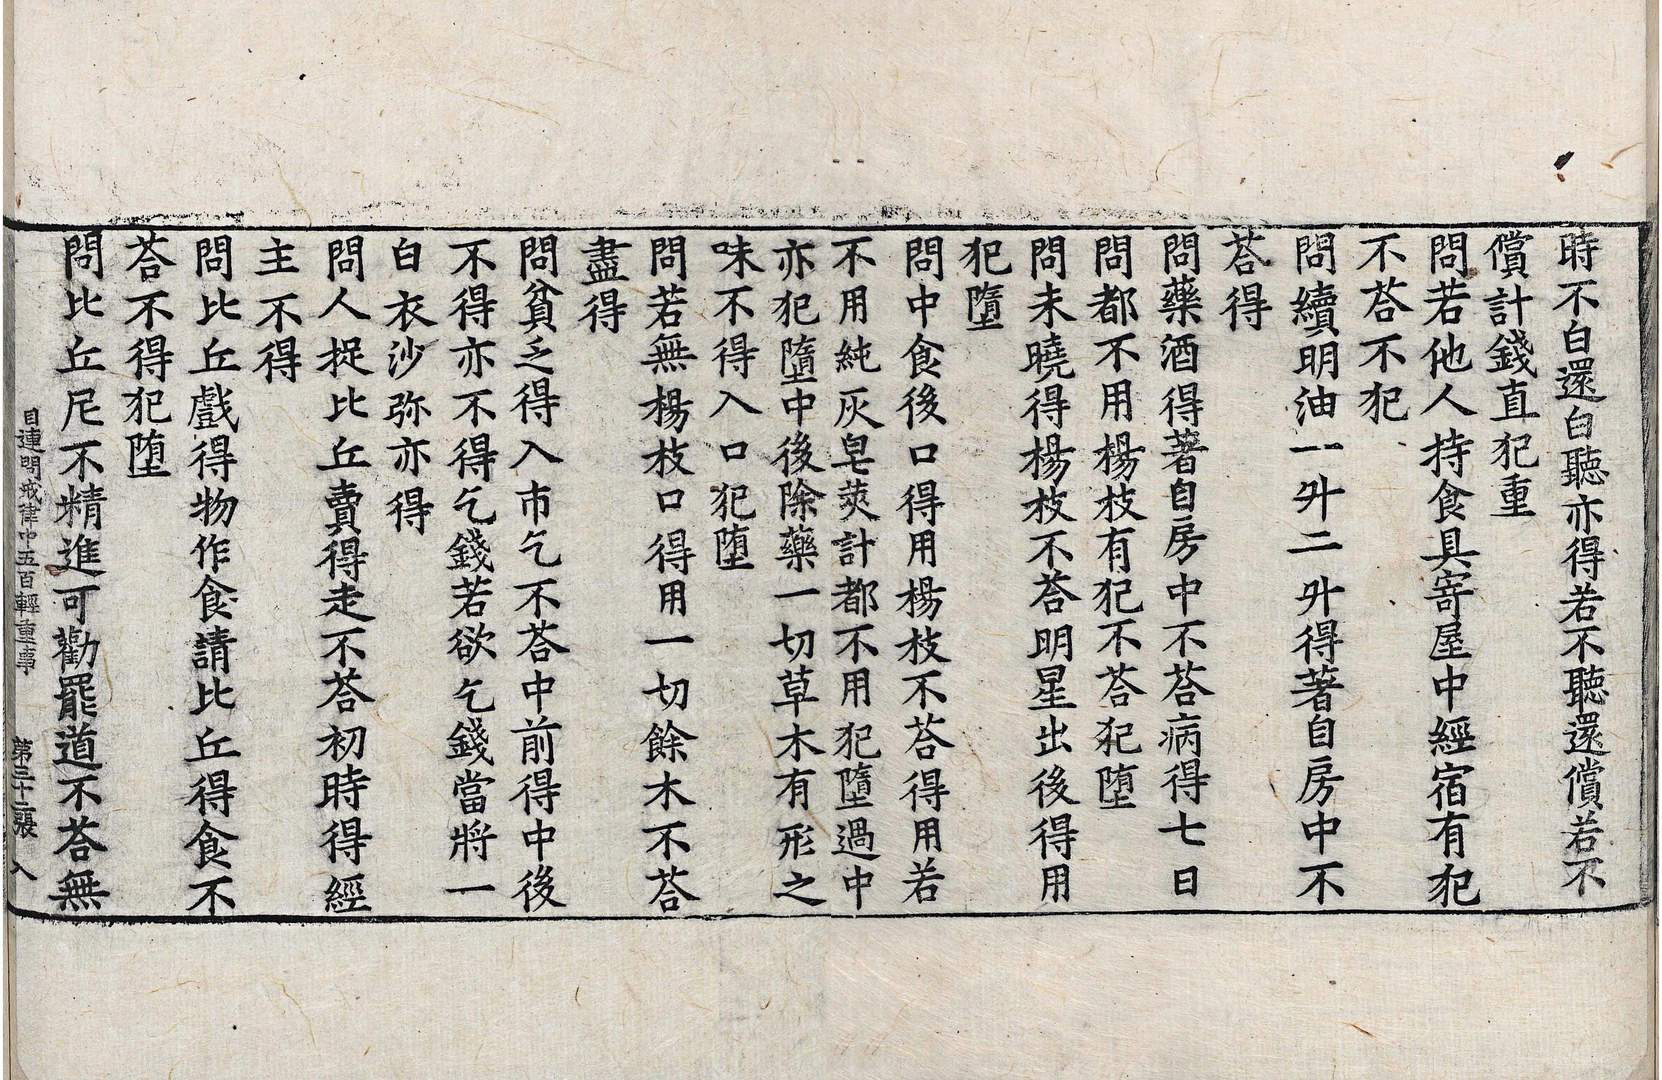 時不白還白聽亦得若不聽還償若不
償計錢直犯重
問若他人持食具寄屋中經宿有犯
不荅不犯
問續明油一升二升得著自房中不
荅得
問藥酒得著自房中不荅病得七日
問都不用楊枝有犯不荅犯墮
問未曉得楊枝不荅明星出後得用
犯墮
問中食後口得用楊枝不荅得用若
不用純灰皂莢計都不用犯墮過中
亦犯墮中後除藥一切草木有形之
味不得入口犯墮
問若無楊枝口得用一切餘木不荅
盡得
問貧乏得入市乞不荅中前得中後
不得亦不得乞錢若欲乞錢當將一
白衣沙弥亦得
問人捉比丘賣得走不荅初時得經
主不得
問比丘戲得物作食請比丘得食不
荅不得犯墮
問比丘尼不精進可勸罷道不荅無
目連問戒律中五百輕重事 第三十二張 入